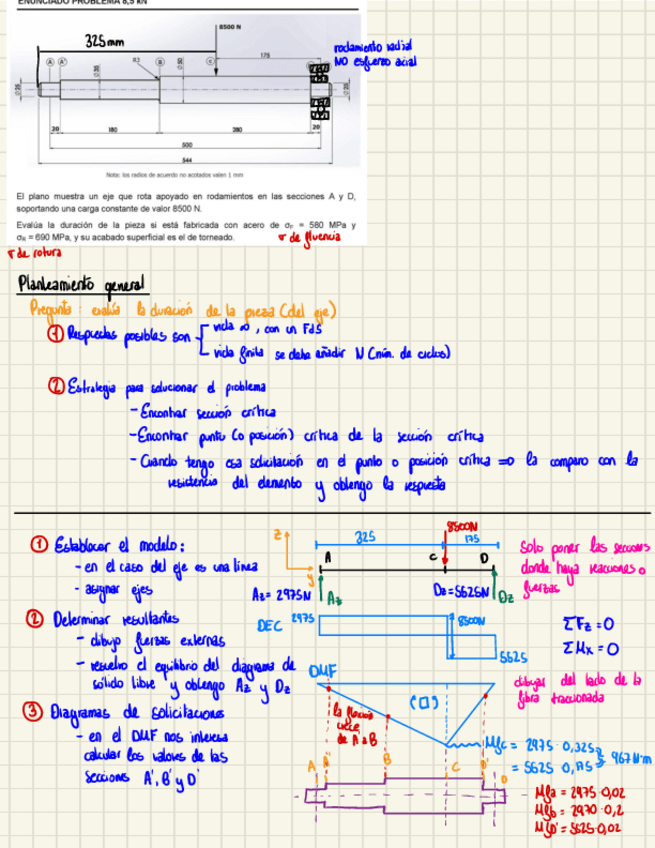 ENUNCIADO PROBLEMA 8,5 kN
8500 N
325mm
175
rodamiento radial
NO esfuerzo acial
A
A'
R3
B
C
Ø35
Ø50
Ø25
Ø25
20
180
280
20
500
544
Nota: los radios de acuerdo no acotados valen 1 mm
El plano muestra un eje que rota apoyado en rodamientos en las secciones A y D,
soportando una carga constante de valor 8500 N.
Evalúa la duración de la pieza si está fabricada con acero de σF = 580 MPa y
σR = 690 MPa, y su acabado superficial es el de torneado.
σ de fluencia
σ de rotura
Planteamiento general
Pregunta: evalúa la duración de la pieza (del eje)
① Respuestas posibles son
vida ∞, con un FdS
vida finita se debe añadir N (núm. de ciclos)
② Estrategia para solucionar el problema
- Encontrar sección crítica
- Encontrar punto (o posición) crítica de la sección crítica
- Cuando tengo esa solicitación en el punto o posición crítica => la comparo con la
resistencia del elemento y obtengo la respuesta
① Establecer el modelo:
- en el caso del eje es una línea
- asignar ejes
② Determinar resultantes
- dibujo fuerzas externas
- resuelvo el equilibrio del diagrama de
sólido libre y obtengo Az y Dz
③ Diagramas de solicitaciones
- en el DMF nos interesa
calcular los valores de las
secciones A', B' y D'
z
y
325
8500N
175
A
C
D
Az = 2975N
Az
Dz = 5625N
Dz
Solo poner las secciones
donde haya reacciones o
fuerzas
DEC
2975
8500N
5625
ΣFz = 0
ΣMx = 0
DMF
dibujar del lado de la
fibra traccionada
la flexión
crece
de A a B
Mfc = 2975 · 0,325
= 5625 0,175
967 N·m
A
A'
B
C
D'
D
Mfa = 2975 · 0,02
Mfb = 2970 · 0,2
Mfd' = 5625 · 0,02